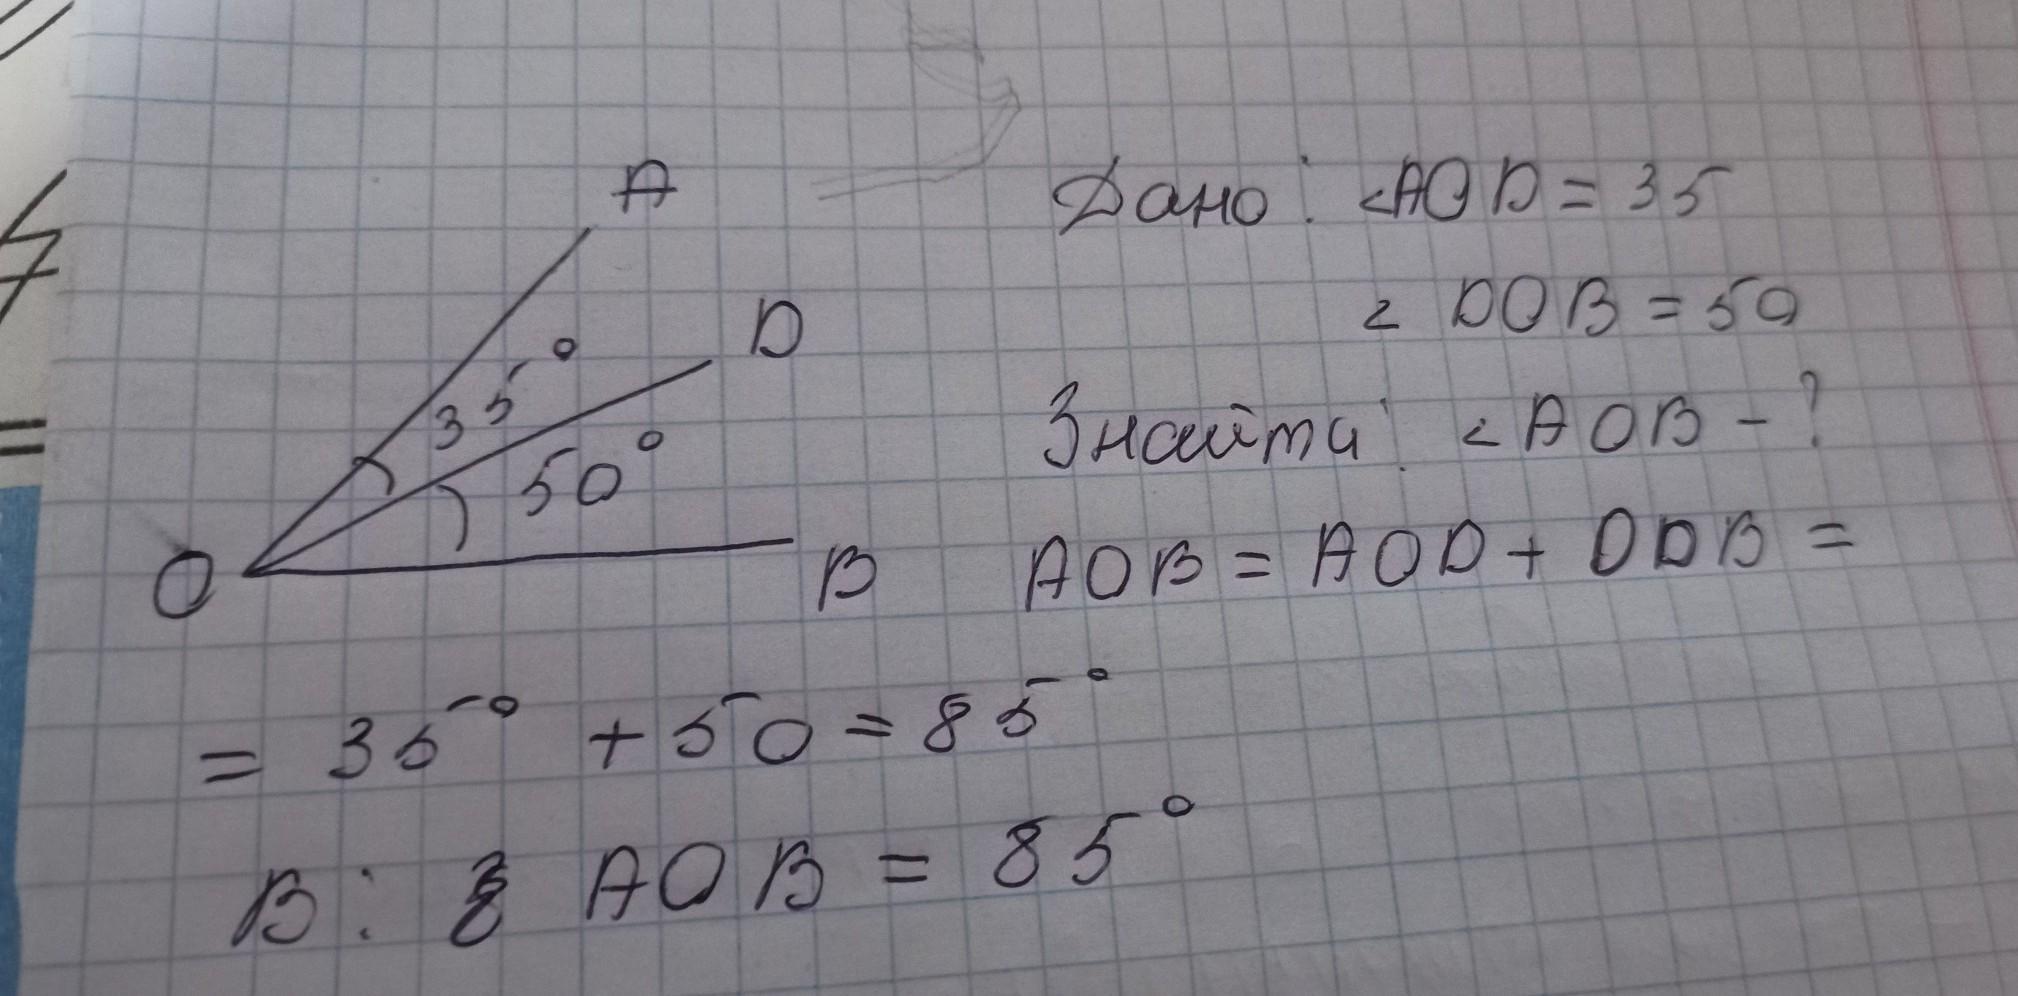 A
D
35°
50°
O
B
Дано: <AOD = 35
< DOB = 50
Знайти: < AOB - ?
AOB = AOD + DOB =
= 35° + 50 = 85°
В: AOB = 85°